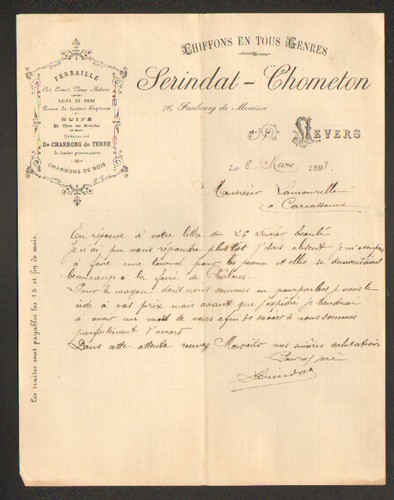 CHIFFONS EN TOUS GENRES
Serindat-Chometon
76, Faubourg de Mouësse
NEVERS
FERRAILLE
Fer, Cuivre, Vieux Métaux
SOIES DE PORC
Peaux de toutes Espèces
SUIFS
Spécialité
De CHARBONS de TERRE
de toutes provenances
CHARBONS DE BOIS
Ces traites sont payables les 15 et fin de mois.
Le 8 Mars 1897
Monsieur Lamourelle
à Carcassonne
En réponse à votre lettre du 25 Février écoulé
Je n'ai pu vous répondre plus tôt j'étais absent je
à faire une tournée pour les peaux et elles se
beaucoup à la foire de
Pour le wagon dont nous sommes en pourparlers je vous le
cède à vos prix mais avant que j'expédie je tiendrai
à avoir un mot de vous afin de savoir si nous sommes
parfaitement d'accord
Dans cette attente recevez Monsieur nos sincères salutations
Serindat